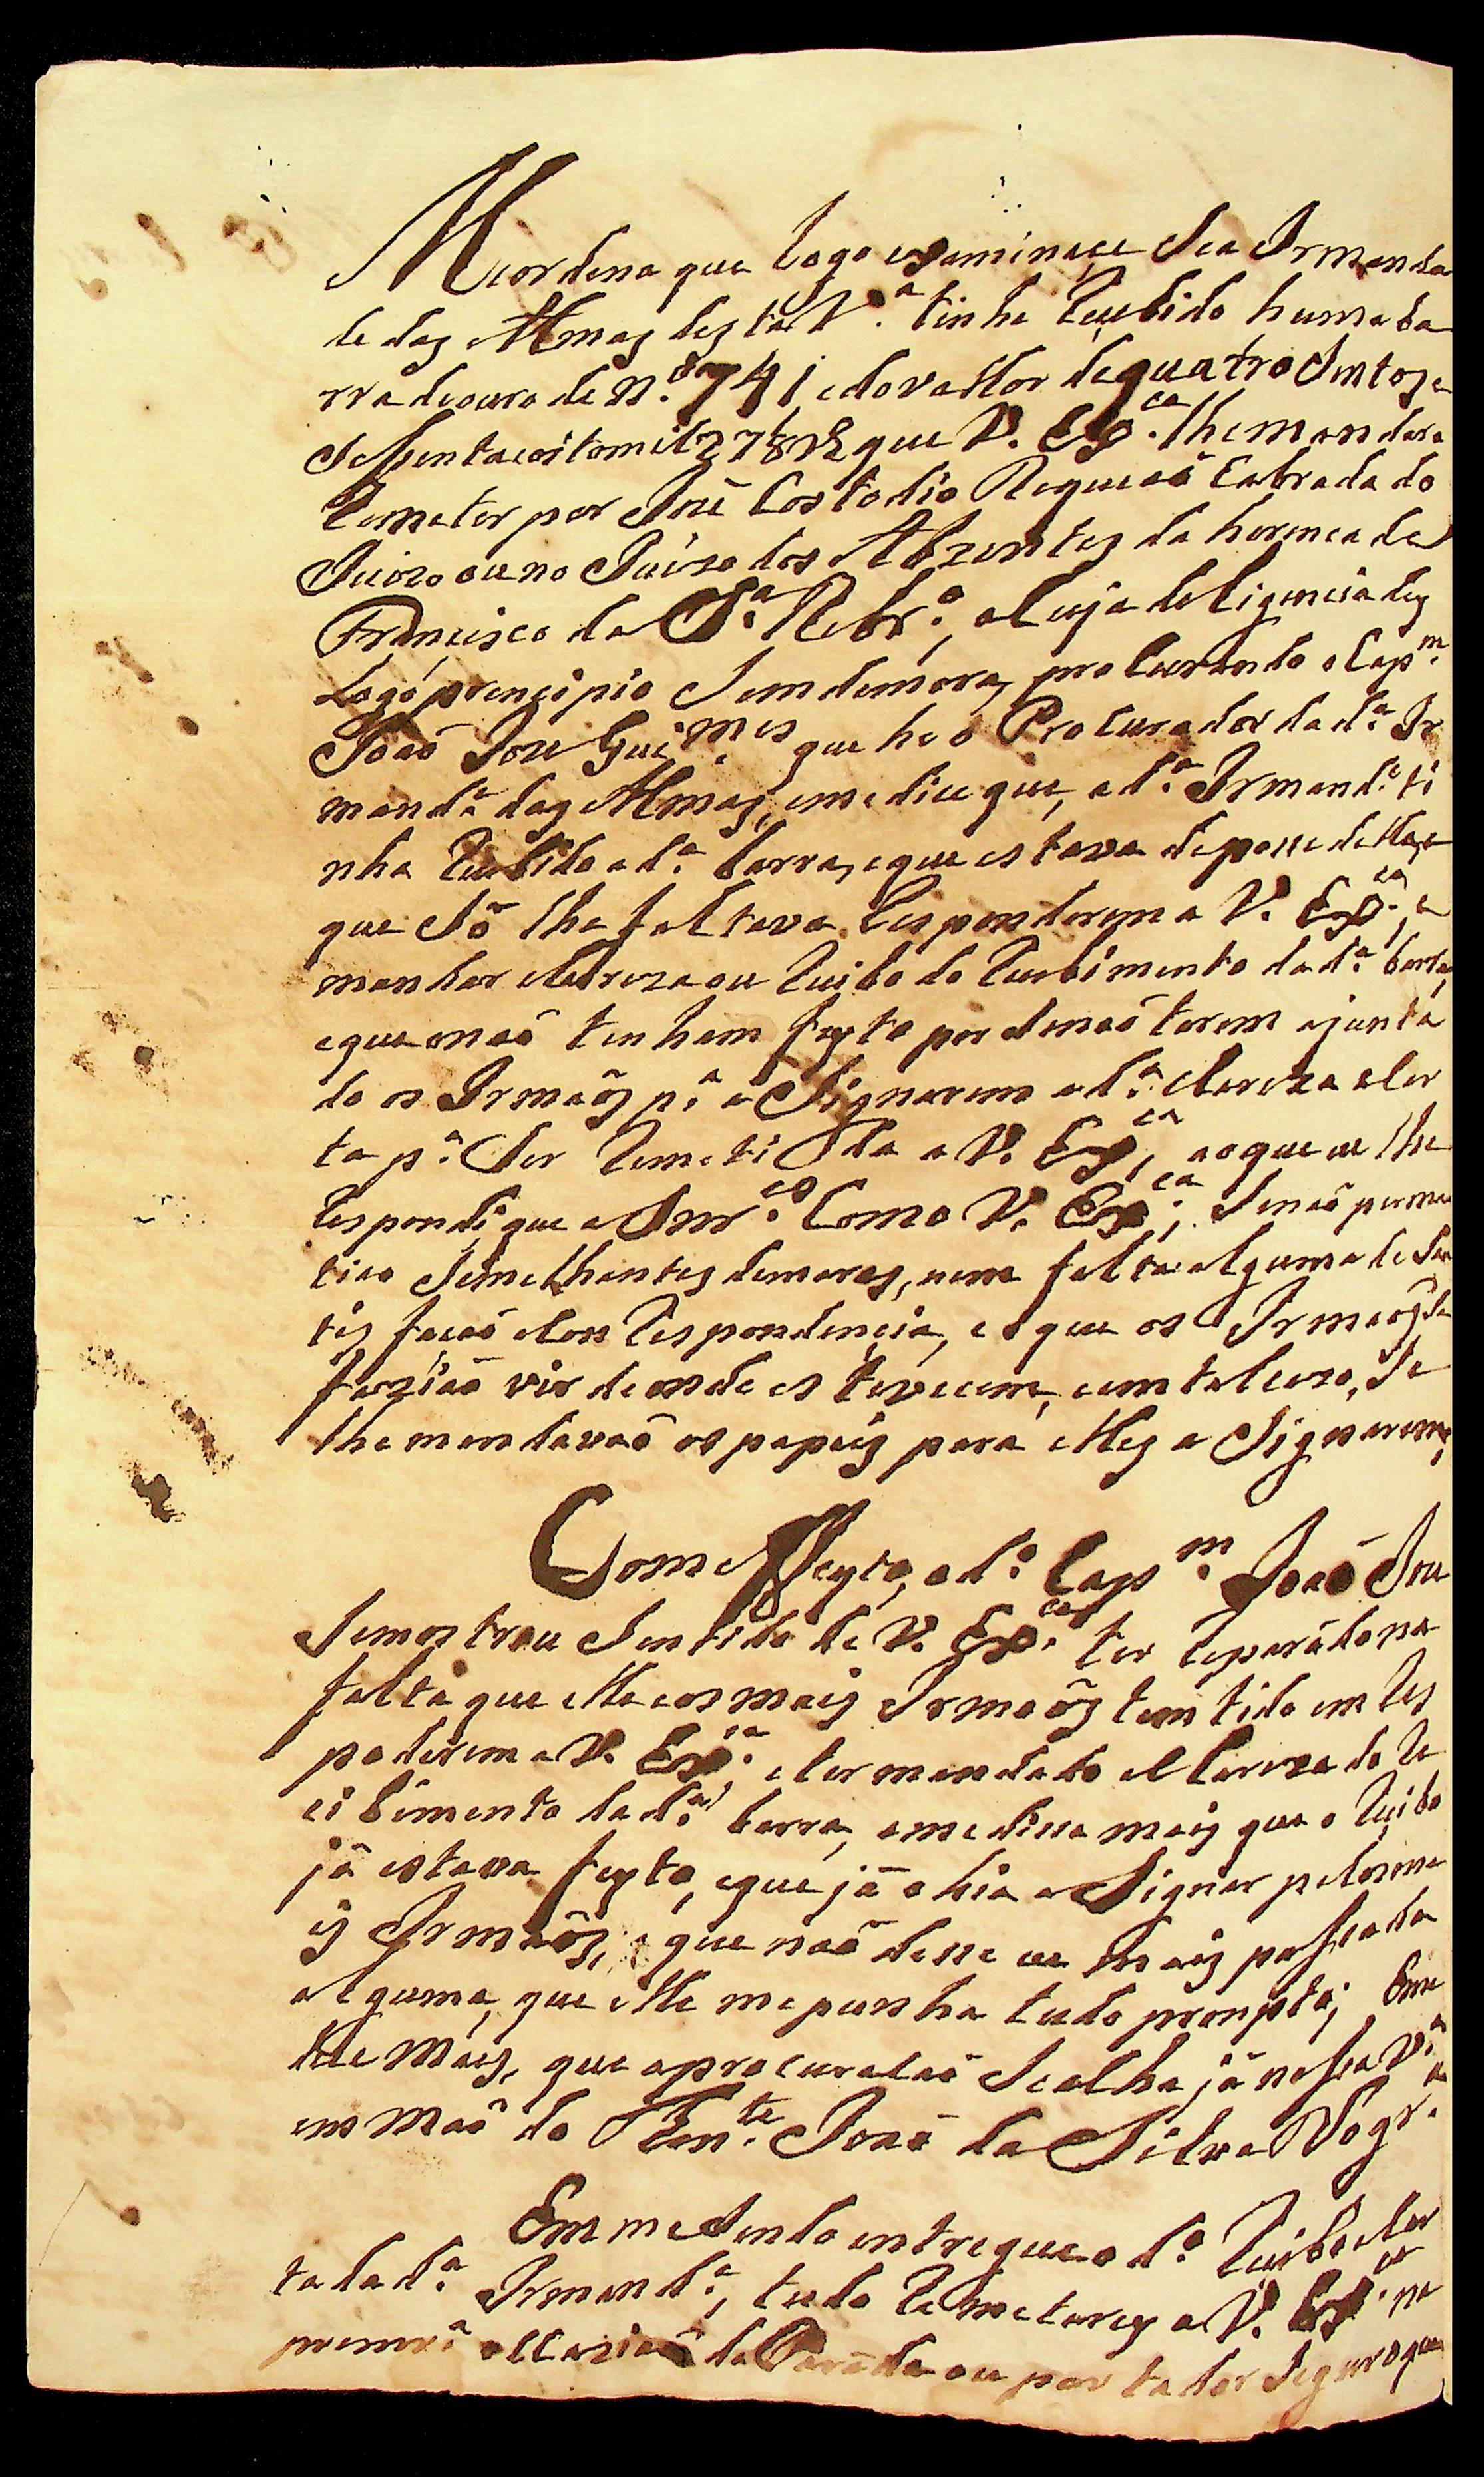 Me ordena que Logo examinaçe Se a Irmanda
de das Almas desta V.ª tinha Recebido huma ba
rra de ouro de N.º 741 e do vallor de quatro Sentos e
Sessenta e oito mil 278 rs que V. Ex.ca lhe mandara
Remeter por José Costodio Requeaõ Cabrada do
Juizo ou no Juizo dos Abzentes da hermea de
Francisco da S.ª Rebr.º, a Cuja deligencia dey
Logo principio Sem demora, procurando o Cap.m
Joaõ Joze Gui.mes que he o Procurador da d.ª Ir
mand.ª das Almas, e me dice que, a d.ª Irmand.ª ti
nha Recebido a d.ª barra, e que estava de posse della, e
que Só lhe faltava Responderem a V. Ex.ca, e
mandar Clareza ou Recibo do Recebimento da d.ª barra,
e que o naõ tenham feyto por Senaõ terem ajunta
do os Irmaõs p.ª aSignarem a d.ª Clareza e Car
ta p.ª Ser Remetida a V. Ex.ca, ao que eu lhe
Respondi que a Snr.es Como V. Ex.ca, Senaõ perme
tiaõ Semelhantes demoras, nem falta alguma de Sa
tisfacaõ e Correspondencia, e o que os Irmaõs Se
faziaõ vir de onde es tivecem, e em tal cazo, Se
lhe mandavaõ os papeis para elles aSignarem,
Com effeyto, o d.º Cap.m Joaõ Joze
Se mostrou Sentido de V. Ex.ca ter Reparado na
falta que elle e os mais Irmaõs tem tido em Res
poderem a V. Ex.ca, e ter mandado a Clareza do Re
cibimento da d.ª barra, e me disse mais que o Recibo
já estava feyto, e que já o hia aSignar pelos ma
is Irmaõs, e que naõ desse eu mais passada
alguma, que elle me punha tudo prompto; Em e
disse Mais, que a procuracaõ Se acha já nessa V.ª
em maõ do Ten.te Joaõ da Silva
Em me Sendo entregue o d.º Recibo e Car
ta da d.ª Irmand.ª, tudo Remeterey a V. Ex.ca na
primr.ª occaziaõ da Parada ou por tador Seguro que